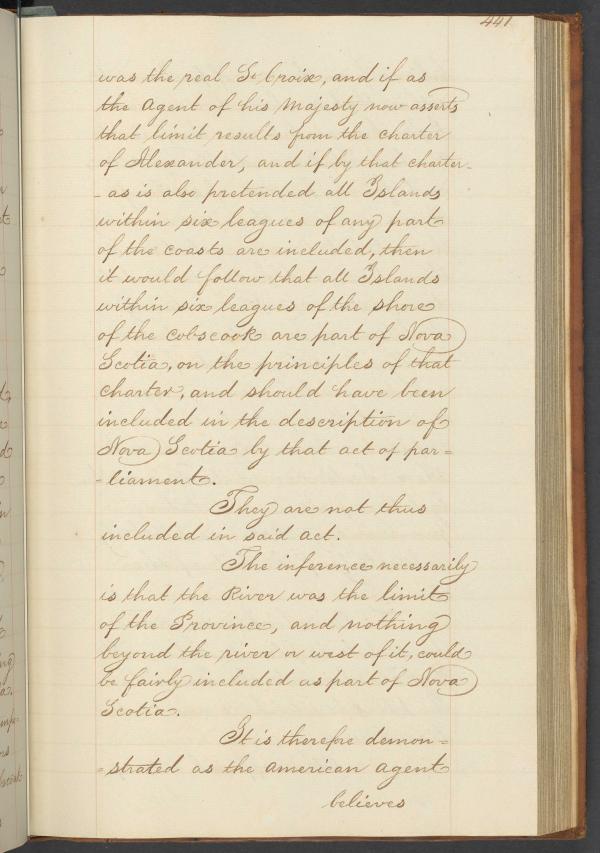 441
was the real St Croix, and if as
the Agent of his Majesty now asserts
that limit results from the charter
of Alexander, and if by that charter-
-as is also pretended all Islands
within six leagues of any part
of the coasts are included, then
it would follow that all Islands
within six leagues of the shore
of the Cobscook are part of Nova
Scotia, on the principles of that
charter, and should have been
included in the description of
Nova Scotia by that act of par=
-liament.
They are not thus
included in said act.
The inference necessarily
is that the River was the limit
of the Province, and nothing
beyond the river or west of it, could
be fairly included as part of Nova
Scotia.
It is therefore demon=
-strated as the American agent
believes